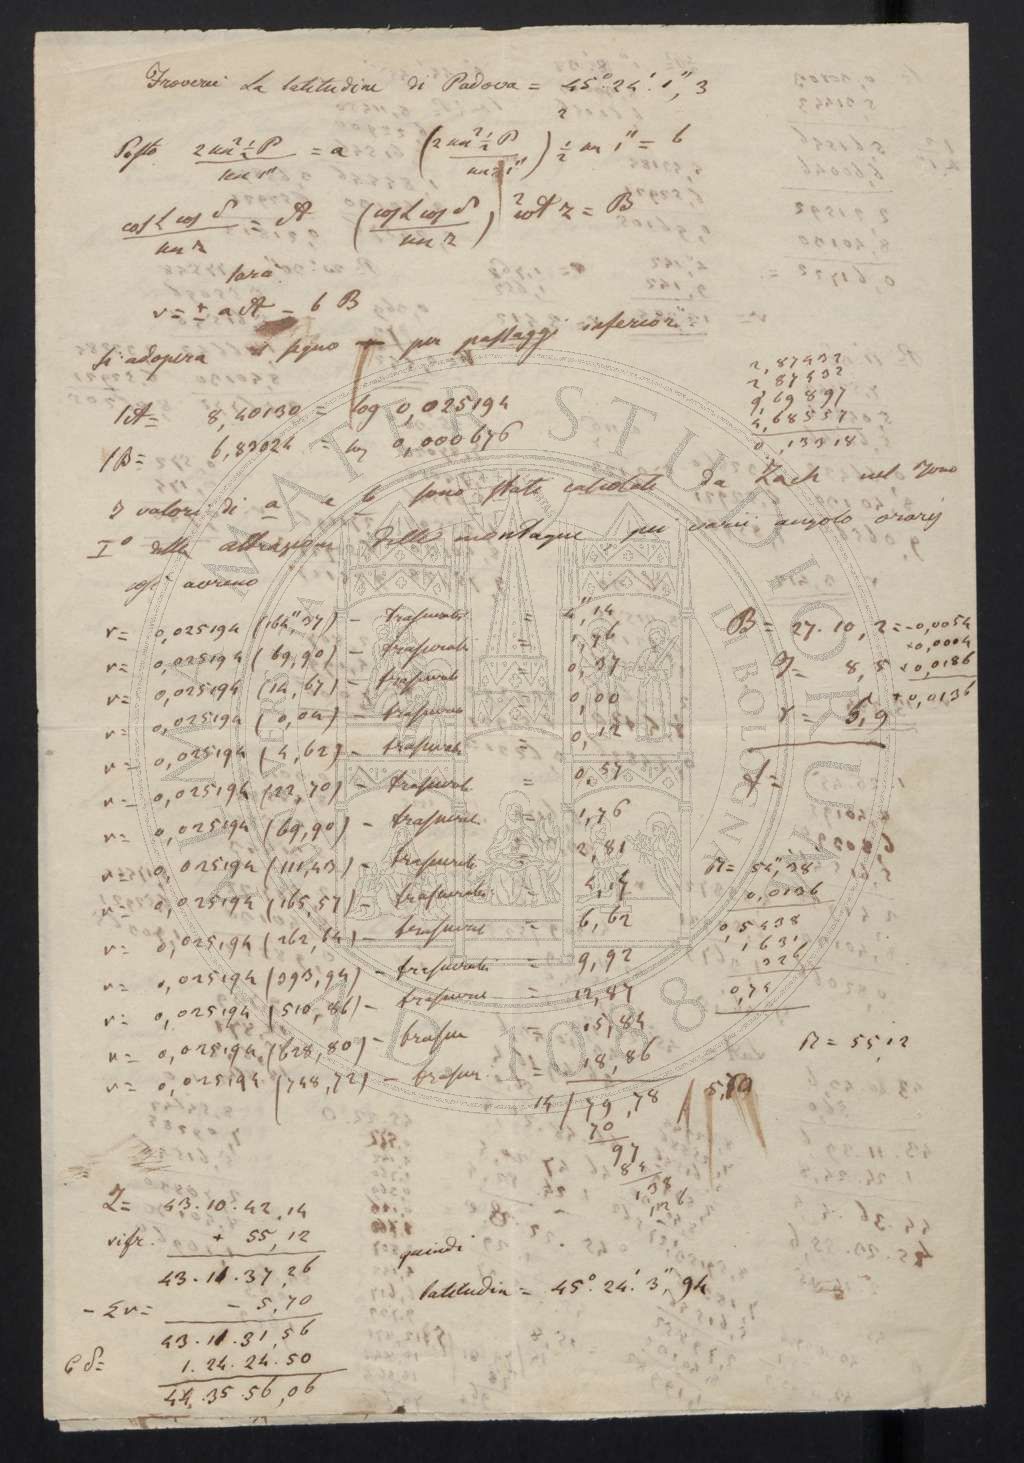 Troverei la latitudine di Padova = 45°. 24'. 1",3
Posto 2 sen² ½ P / sen 1" = a (2 sen² ½ P / sen 1")² ½ sen 1" = b
cos L cos δ / sen z = A (cos L cos δ / sen z)² cot z = B
sarà
v = ± a A - b B
si adopera il segno - per passaggi inferiori
lA = 8,40130 = log 0,025194
lB = 6,83024 = log 0,000676
2,87432
2,87432
9,69897
4,68557
0,13318
I valori di a e b sono stati calcolati da Zach nel Tomo
I° della attrazione delle montagne, pei varii angolo orarij
ossi avremo
v = 0,025194 (164",37) - trascurabi = 4",14
v = 0,025194 (69,90) - trascurab = 1,76
v = 0,025194 (14,67) - trascurab = 0,37
v = 0,025194 (0,04) - trascurab = 0,00
v = 0,025194 (4,62) - trascurab = 0,12
v = 0,025194 (22,70) - trascurab = 0,57
v = 0,025194 (69,90) - trascurab = 1,76
v = 0,025194 (111,43) - trascurab = 2,81
v = 0,025194 (165,57) - trascurabi = 4,17
v = 0,025194 (262,64) - trascurab = 6,62
v = 0,025194 (393,94) - trascurabi = 9,92
v = 0,025194 (510,86) - trascurab = 12,87
v = 0,025194 (628,80) - trascur = 15,84
v = 0,025194 (748,72) - trascur = 18,86
14 / 79,78 / 5,70
70
97
84
138
126
B = 27.10,2 = -0,0054
+0,0004
T = 8,5 +0,0186
r = 6,9 +0,0136
f =
R = 54",38
0,0136
0,5438
1631
326
0,74
R = 55,12
Z = 43.10.42,14
rifr. + 55,12
43.11.37,26
- Σv = - 5,70
43.11.31,56
C δ = 1.24.24.50
44.35.56,06
quindi
latitudin = 45°. 24'. 3",94
ALMA MATER STUDIORUM
A.D. 1088